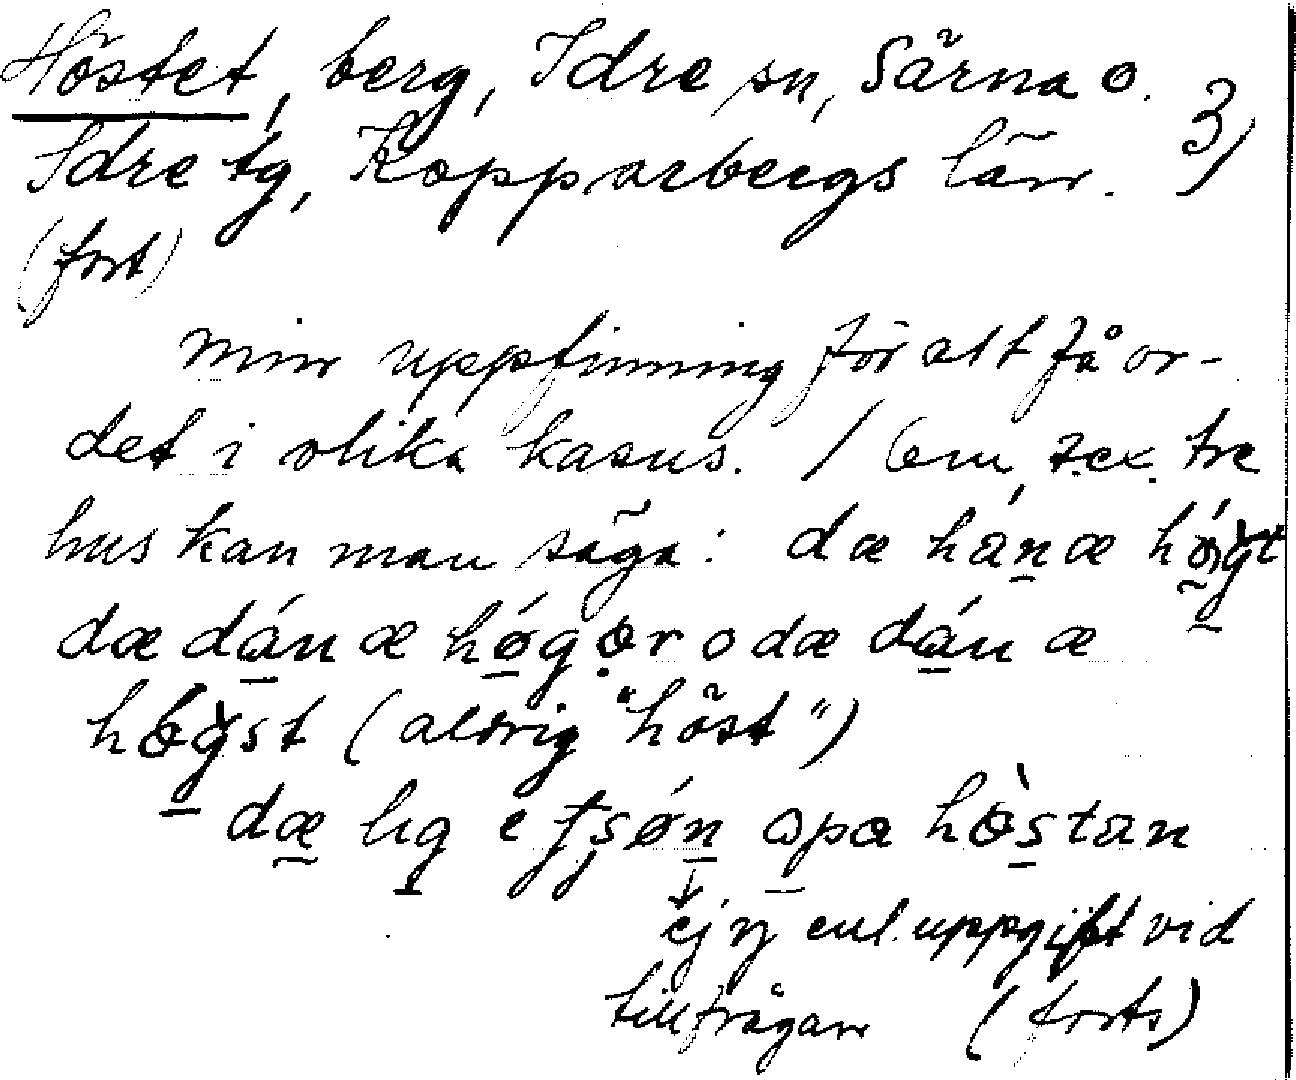 Höstet, berg, Idre sn, Särna o. 3)
Idre tg, Kopparbergs län.
(fort)
min uppfinning för att få or-
det i olika kasus. / Om, t.ex. tre
hus kan man säga: dæ hánæ hǿgt
dæ dánæ hǿgør o dæ dánæ
høgst (aldrig "höst")
dæ lıg e fʂǿn opa hø̀stan
ej ŋ enl. uppgift vid
tillfrågan (forts)